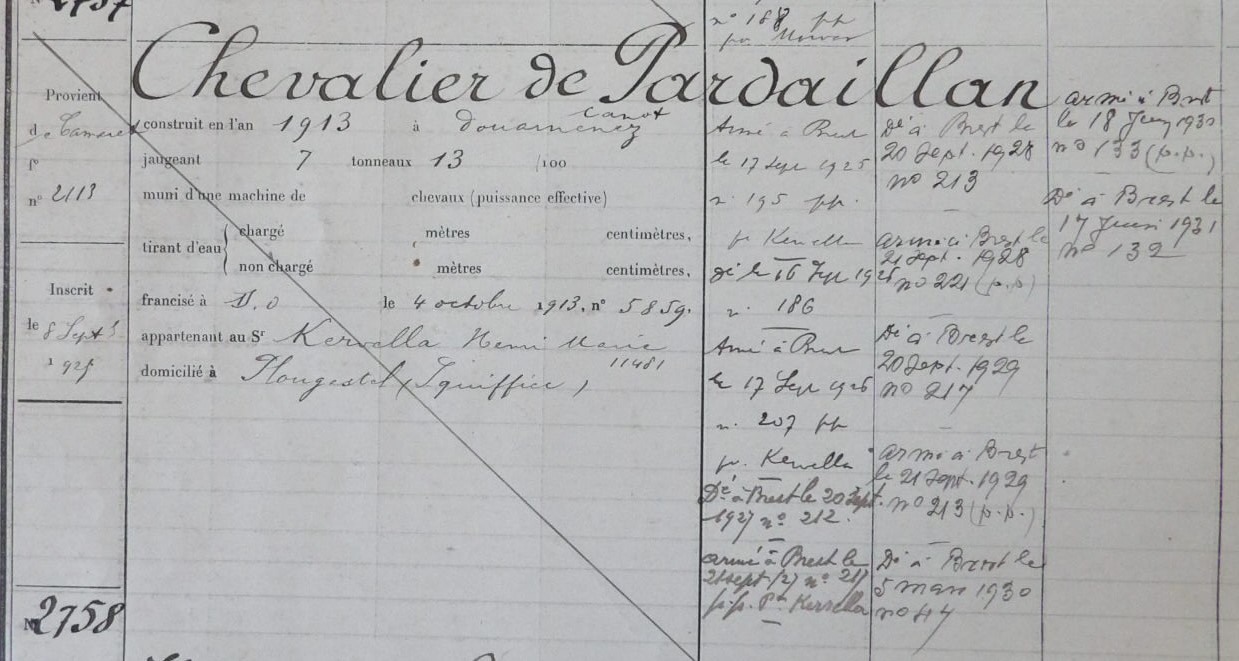 N° 2757
Chevalier de Pardaillan
Provient
de Camaret
f°
n° 2113
Inscrit
le 8 Sept
1925
construit en l'an 1913 à Douarnenez canot
jaugeant 7 tonneaux 13 /100
muni d'une machine de chevaux (puissance effective)
tirant d'eau { chargé mètres centimètres,
non chargé mètres centimètres,
francisé à D.o le 4 octobre 1913, n° 5859.
appartenant au Sr Kervella Henri Marie
domicilié à Plougastel ( ) 11481
n° 188 pp
Armé à Brest
le 17 Sept 1925
n. 195 pp.
pr. Kervella
dé le 16 Sept 1926
n. 186
Armé à Brest
le 17 Sept 1926
n. 207 pp
pr. Kervella
Dé à Brest le 20 Sept.
1927 n° 212.
armé à Brest le
21 sept /27 n° 217
p.p. Pn Kervella
Dé à Brest le
20 Sept. 1928
n° 213
armé à Brest le
21 Sept. 1928
n° 221 (p.p)
Dé à Brest le
20 Sept. 1929
n° 217
armé à Brest
le 21 Sept. 1929
n° 213 (p.p.)
Dé à Brest le
5 mars 1930
n° 47
armé à Brest
le 18 1930
n° 133 (p.p.)
Dé à Brest le
17 1931
n° 132
N° 2758